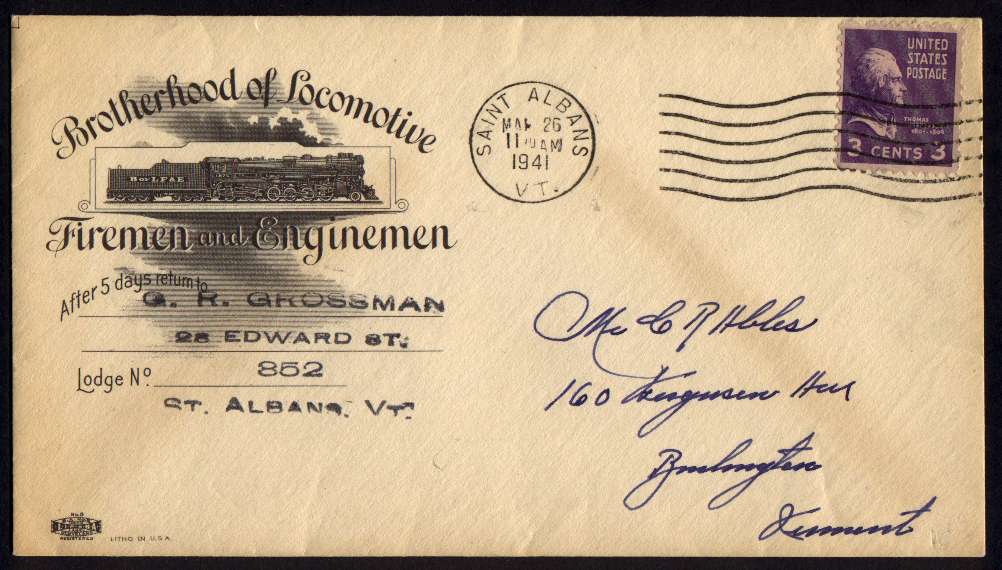 Brotherhood of Locomotive
B of L F & E
Firemen and Enginemen
After 5 days return to
G. R. GROSSMAN
28 EDWARD ST.
Lodge No. 852
ST. ALBANS, VT.
LITHO IN U.S.A.
SAINT ALBANS
MAR 26
11 AM
1941
VT.
UNITED
STATES
POSTAGE
THOMAS
3 CENTS 3
Mr C R Ables
160 Ferguson Ave
Burlington
Vermont